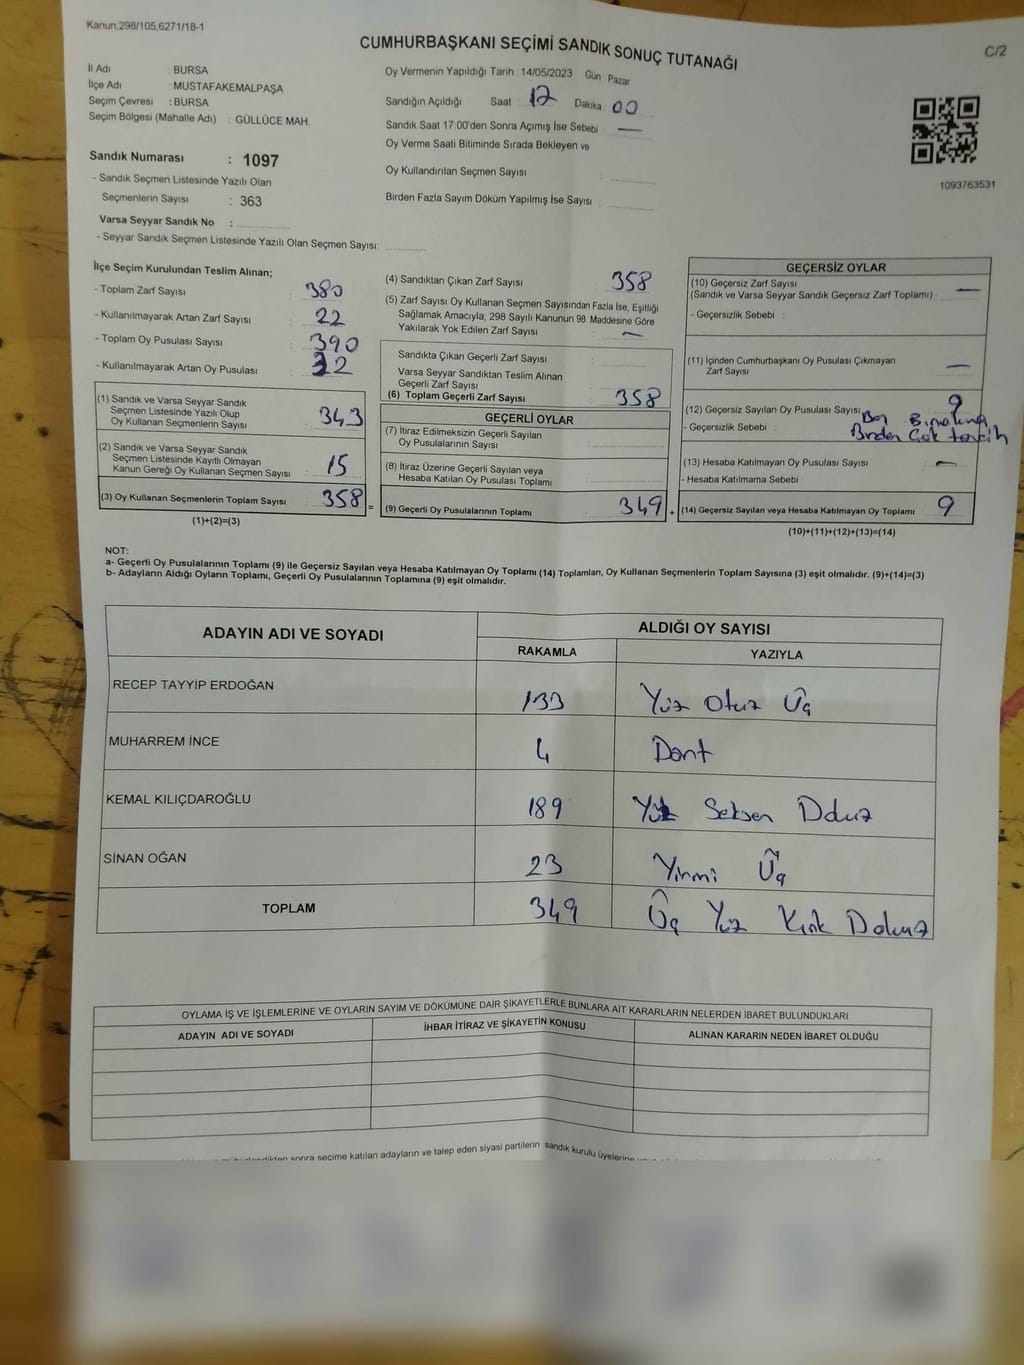 Kanun;298/105;6271/18-1
CUMHURBAŞKANI SEÇİMİ SANDIK SONUÇ TUTANAĞI
C/2
İl Adı : BURSA
İlçe Adı : MUSTAFAKEMALPAŞA
Seçim Çevresi : BURSA
Seçim Bölgesi (Mahalle Adı) : GÜLLÜCE MAH.
Oy Vermenin Yapıldığı Tarih 14/05/2023 Gün Pazar
Sandığın Açıldığı Saat : 17 Dakika : 00
Sandık Saat 17:00'den Sonra Açımış İse Sebebi : —
Oy Verme Saati Bitiminde Sırada Bekleyen ve
Oy Kullandırılan Seçmen Sayısı :
Birden Fazla Sayım Döküm Yapılmış İse Sayısı :
1093763531
Sandık Numarası : 1097
- Sandık Seçmen Listesinde Yazılı Olan
Seçmenlerin Sayısı : 363
Varsa Seyyar Sandık No :
- Seyyar Sandık Seçmen Listesinde Yazılı Olan Seçmen Sayısı:
İlçe Seçim Kurulundan Teslim Alınan;
- Toplam Zarf Sayısı : 380
- Kullanılmayarak Artan Zarf Sayısı : 22
- Toplam Oy Pusulası Sayısı : 390
- Kullanılmayarak Artan Oy Pusulası : 32
(1) Sandık ve Varsa Seyyar Sandık
Seçmen Listesinde Yazılı Olup
Oy Kullanan Seçmenlerin Sayısı : 343
(2) Sandık ve Varsa Seyyar Sandık
Seçmen Listesinde Kayıtlı Olmayan
Kanun Gereği Oy Kullanan Seçmen Sayısı : 15
(3) Oy Kullanan Seçmenlerin Toplam Sayısı : 358 =
(1)+(2)=(3)
(4) Sandıktan Çıkan Zarf Sayısı : 358
(5) Zarf Sayısı Oy Kullanan Seçmen Sayısından Fazla İse, Eşitliği
Sağlamak Amacıyla, 298 Sayılı Kanunun 98. Maddesine Göre
Yakılarak Yok Edilen Zarf Sayısı : —
Sandıkta Çıkan Geçerli Zarf Sayısı :
Varsa Seyyar Sandıktan Teslim Alınan
Geçerli Zarf Sayısı :
(6) Toplam Geçerli Zarf Sayısı : 358
GEÇERLİ OYLAR
(7) İtiraz Edilmeksizin Geçerli Sayılan
Oy Pusulalarının Sayısı :
(8) İtiraz Üzerine Geçerli Sayılan veya
Hesaba Katılan Oy Pusulası Toplamı :
(9) Geçerli Oy Pusulalarının Toplamı : 349 +
GEÇERSİZ OYLAR
(10) Geçersiz Zarf Sayısı
(Sandık ve Varsa Seyyar Sandık Geçersiz Zarf Toplamı) : —
- Geçersizlik Sebebi :
(11) İçinden Cumhurbaşkanı Oy Pusulası Çıkmayan
Zarf Sayısı : —
(12) Geçersiz Sayılan Oy Pusulası Sayısı : 9
- Geçersizlik Sebebi : Boş
Birden Çok tercih
(13) Hesaba Katılmayan Oy Pusulası Sayısı : —
- Hesaba Katılmama Sebebi :
(14) Geçersiz Sayılan veya Hesaba Katılmayan Oy Toplamı : 9
(10)+(11)+(12)+(13)=(14)
NOT:
a- Geçerli Oy Pusulalarının Toplamı (9) ile Geçersiz Sayılan veya Hesaba Katılmayan Oy Toplamı (14) Toplamları, Oy Kullanan Seçmenlerin Toplam Sayısına (3) eşit olmalıdır. (9)+(14)=(3)
b- Adayların Aldığı Oyların Toplamı, Geçerli Oy Pusulalarının Toplamına (9) eşit olmalıdır.
ADAYIN ADI VE SOYADI
ALDIĞI OY SAYISI
RAKAMLA YAZIYLA
RECEP TAYYİP ERDOĞAN 133 Yüz Otuz Üç
MUHARREM İNCE 4 Dört
KEMAL KILIÇDAROĞLU 189 Yüz Seksen Dokuz
SİNAN OĞAN 23 Yirmi Üç
TOPLAM 349 Üç Yüz Kırk Dokuz
OYLAMA İŞ VE İŞLEMLERİNE VE OYLARIN SAYIM VE DÖKÜMÜNE DAİR ŞİKAYETLERLE BUNLARA AİT KARARLARIN NELERDEN İBARET BULUNDUKLARI
ADAYIN ADI VE SOYADI
İHBAR İTİRAZ VE ŞİKAYETİN KONUSU
ALINAN KARARIN NEDEN İBARET OLDUĞU
sonra seçime katılan adayların ve talep eden siyasi partilerin sandık kurulu üyelerine